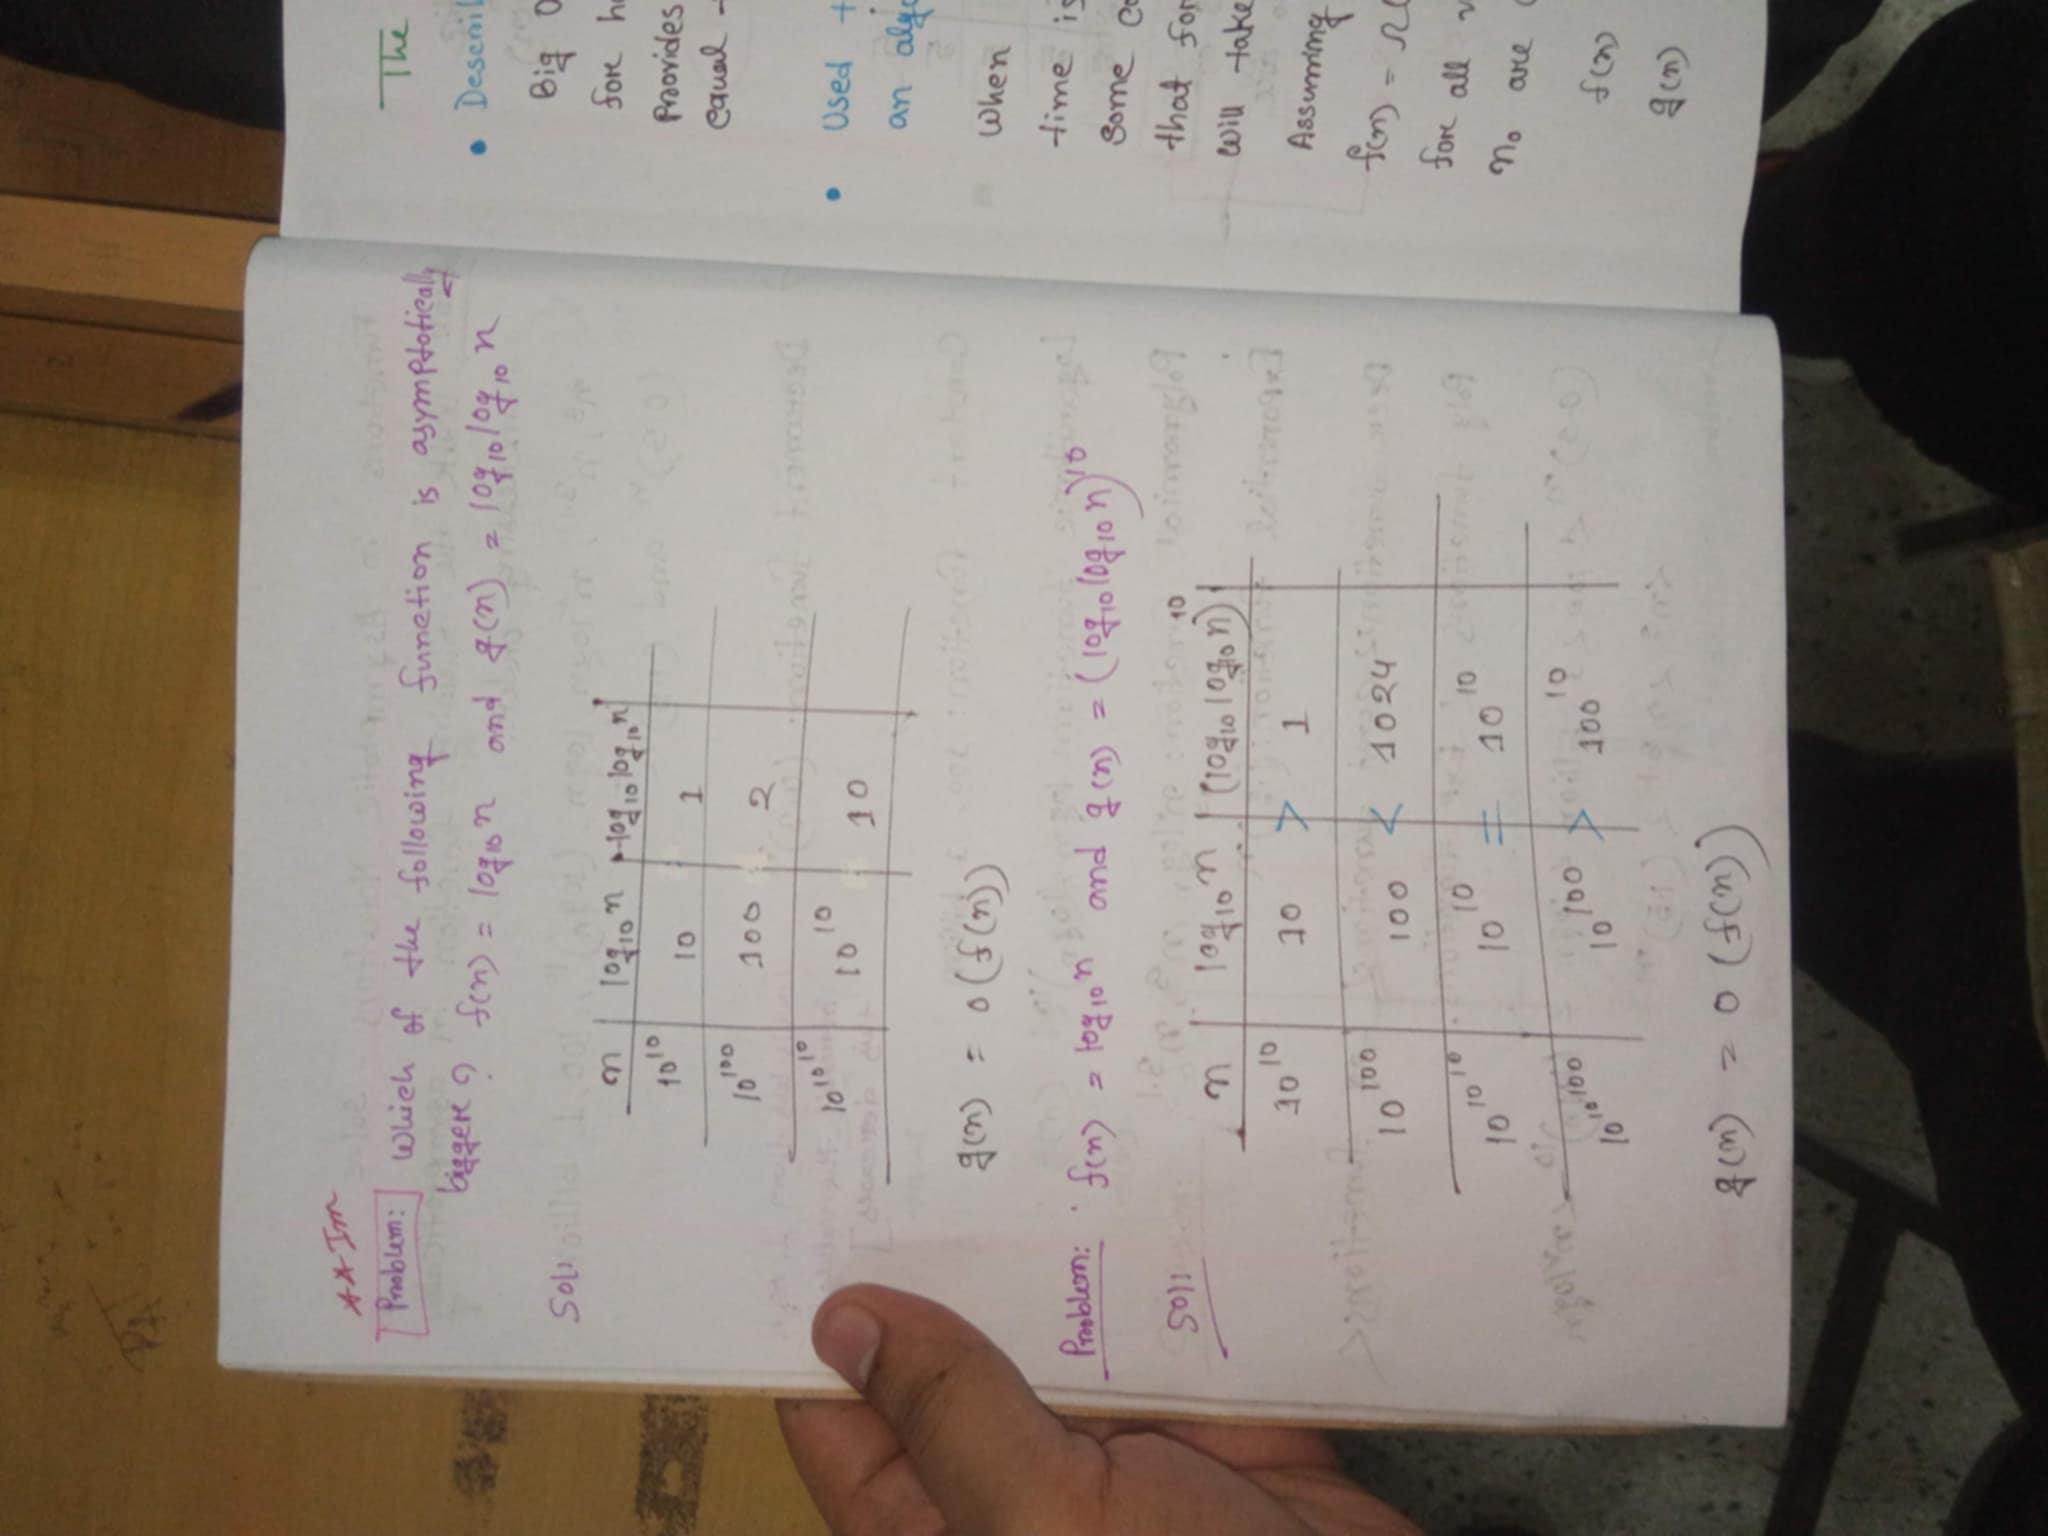 ** Im
Problem: Which of the following function is asymptotically
bigger? f(n) = log₁₀ n and g(n) = log₁₀ log₁₀ n
Sol:
n | log₁₀ n | log₁₀ log₁₀ n
10^10 | 10 | 1
10^100 | 100 | 2
10^10^10 | 10^10 | 10
g(n) = o(f(n))
Problem: f(n) = log₁₀ n and g(n) = (log₁₀ log₁₀ n)^10
Sol:
n | log₁₀ n | (log₁₀ log₁₀ n)^10
10^10 | 10 > 1
10^100 | 100 < 1024
10^10^10 | 10^10 = 10^10
10^10^100 | 10^100 > 100^10
g(n) = o(f(n))
The
• Describ
Big O
for
Provides
equal
• Used
an algo
When
time is
some co
that for
will take
Assuming
f(n) = Ω(
for all
n₀ are
f(n)
g(n)